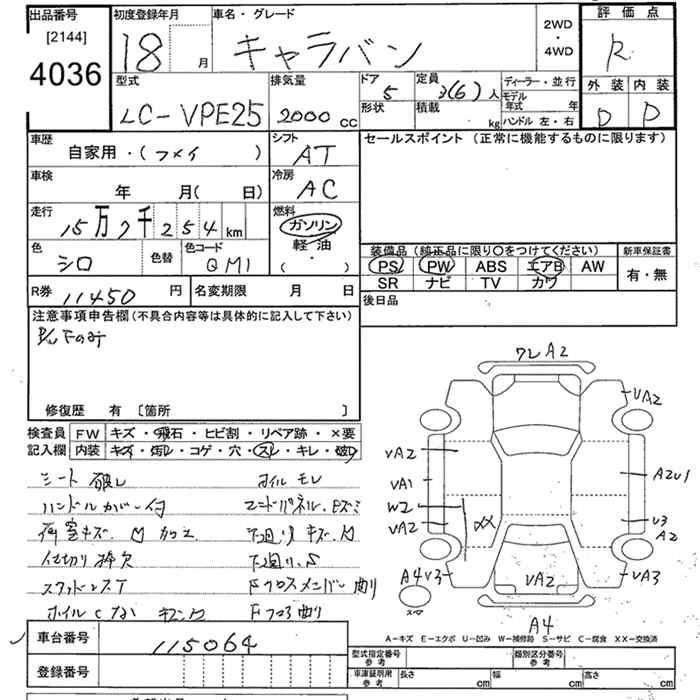 出品番号
[2144]
4036
初度登録年月
18 月
車名・グレード
キャラバン
2WD
・
4WD
評価点
R
外装 内装
D D
型式
LC-VPE25
排気量
2000 CC
ドア
5
形状
定員
3(6) 人
積載
kg
ディーラー・並行
モデル
年式 年
ハンドル 左・右
車歴
自家用・( )
シフト
AT
セールスポイント (正常に機能するものに限ります)
車検
年 月( 日)
冷房
AC
走行
15万7千254 km
燃料
ガソリン
軽油
( ・ )
色
シロ
色替
色コード
QM1
装備品 (純正品に限り○をつけてください)
PS PW ABS エアB AW
SR ナビ TV カワ
新車保証書
有・無
R券 11450 円
名変期限 月 日
後日品
注意事項申告欄(不具合内容等は具体的に記入して下さい)
修復歴 有 〔箇所 〕
検査員
記入欄
FW キズ・飛石・ヒビ割・リペア跡・×要
内装 キズ・汚レ・コゲ・穴・スレ・キレ・破レ
シート 破レ
オイルモレ
ハンドルカバー付
荷室キズ.凹
下廻りキズ.凹
仕切り棒欠
下廻り.S
Fクロスメンバー曲り
Fフロア曲り
車台番号
115064
登録番号
ワレA2
VA2
VA2
VA1
W2
VA2
XX
A2U1
U3
A2
A4V3
VA2
VA3
A4
スマ
A-キズ E-エクボ U-凹み W-補修跡 S-サビ C-腐食 XX-交換済
型式指定番号
参考
類別区分番号
参考
車庫証明用
参考
長さ cm
幅 cm
高さ cm